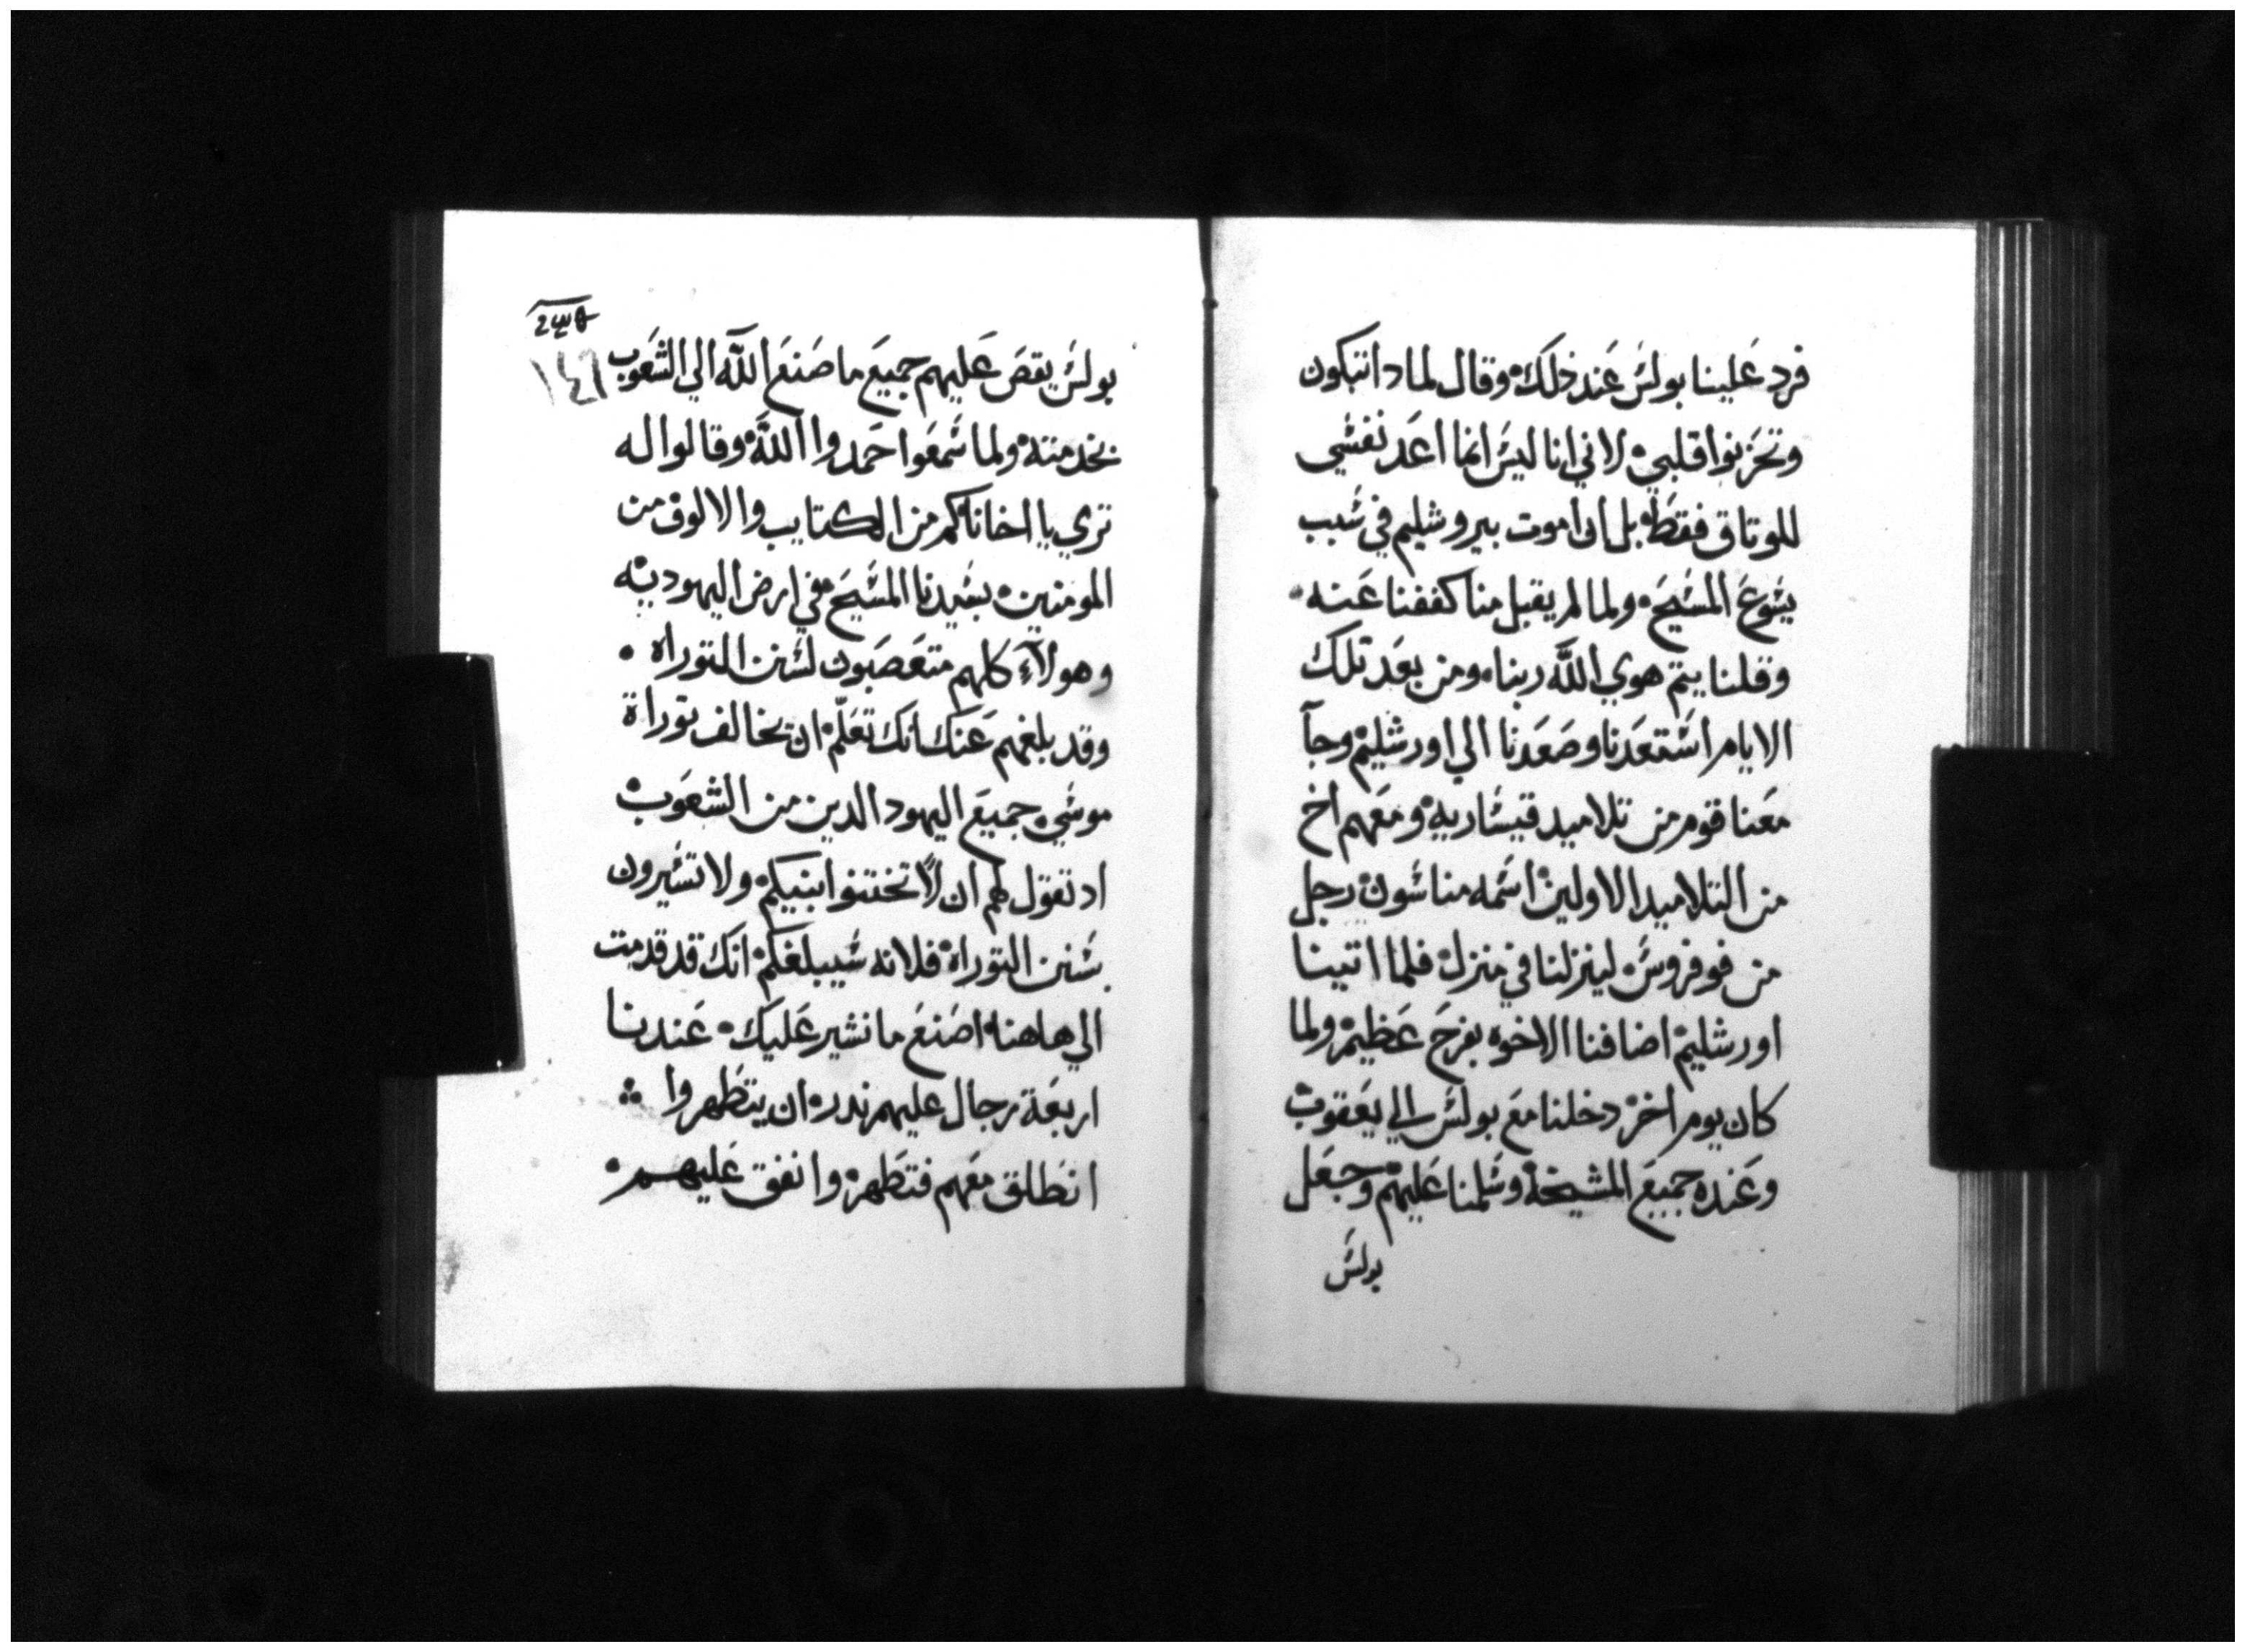 فرد علينا بولس عند ذلك وقال لماد اتبكون
وتحزنوا قلبي لاني انا ليس انما اعد نفسي
للوتاق فقط بل ان اموت بيروشليم في سبب
يسوع المسيح ولما لم يقبل منا كففنا عنه
وقلنا يتم هوي الله ربنا ومن بعد تلك
الايام استعدنا وصعدنا الي اورشليم وجآ
معنا قوم من تلاميد قيساريه ومعهم اخ
من التلاميد الاولين اسمه مناسون رجل
من قوفروس لينزلنا في منزله فلما اتينا
اورشليم اضافنا الاخوه بفرح عظيم ولما
كان يوم اخر دخلنا مع بولس الي يعقوب
وعنده جميع المشيخه وسلمنا عليهم وجعل
بولس
١٤٦
بولس يقص عليهم جميع ما صنع الله الي الشعوب
بخدمته ولما سمعوا حمدوا الله وقالوا له
تري يا اخانا كم من الكتايب والالوف من
المومنين بسيدنا المسيح في ارض اليهوديه
وهولآء كلهم متعصبون لسنن التوراه
وقد بلغهم عنك انك تعلم ان تخالف توراة
موسي جميع اليهود الدين من الشعوب
اد تقول لهم ان لا تختنوا ابنيكم ولا تسيرون
بسنن التوراه فلانه سيبلغكم انك قد قدمت
الي هاهنا اصنع ما نشير عليك عندنا
اربعة رجال عليهم ندر ان يتطهروا
انطلق معهم فتطهر وانفق عليهم